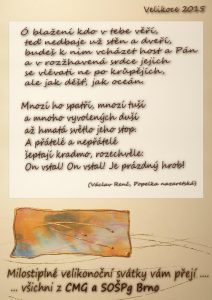 Velikoce 2015
Ó blažení kdo v tebe věří,
teď nedbaje už stěn a dveří,
budeš k nim vcházet host a Pán
a v rozžhavená srdce jejich
se vlévati ne po krůpějích,
ale jak déšť, jak oceán.
Mnozí ho spatří, mnozí tuší
a mnoho vyvolených duší
až hmatá světlo jeho stop.
A přátelé a nepřátelé
šeptají kradmo, rozechvěle:
On vstal! On vstal! Je prázdný hrob!
(Václav Renč, Popelka nazaretská)
Milostiplné velikonoční svátky vám přejí ....
... všichni z CMG a SOŠPg Brno